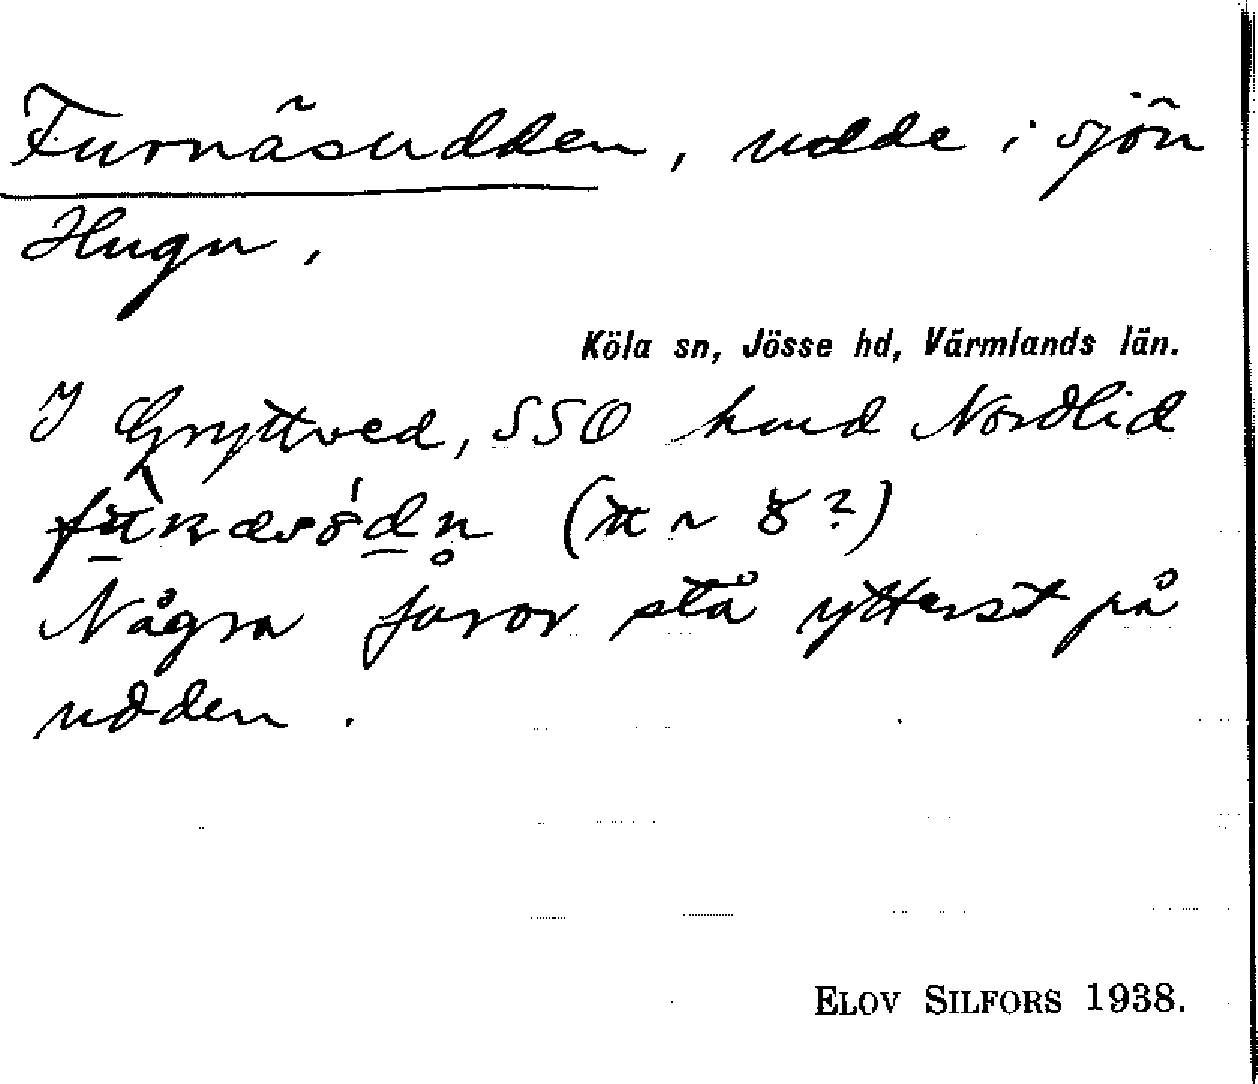 Furnäsudden, udde i sjön
Hugn,
Köla sn, Jösse hd, Värmlands län.
I Gryttved, SSO hmd Nordlid
Några furor stå ytterst på
udden.
ELOV SILFORS 1938.